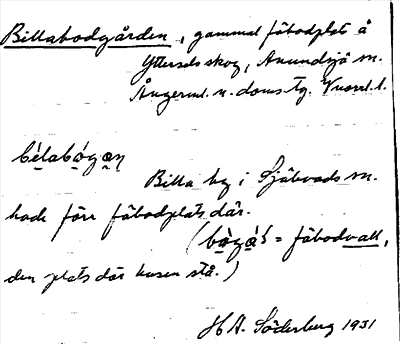 Billabodgården, gammal fäbodplats å
Ytterselsskog, Anundsjö sn.
Ångerml. n. doms. tg. Vnorrl. l.
bélabógan
Billa by i Själevads sn.
hade förr fäbodplats där.
(bógá = fäbodvall,
den plats där husen stå.)
H A. Söderberg 1931